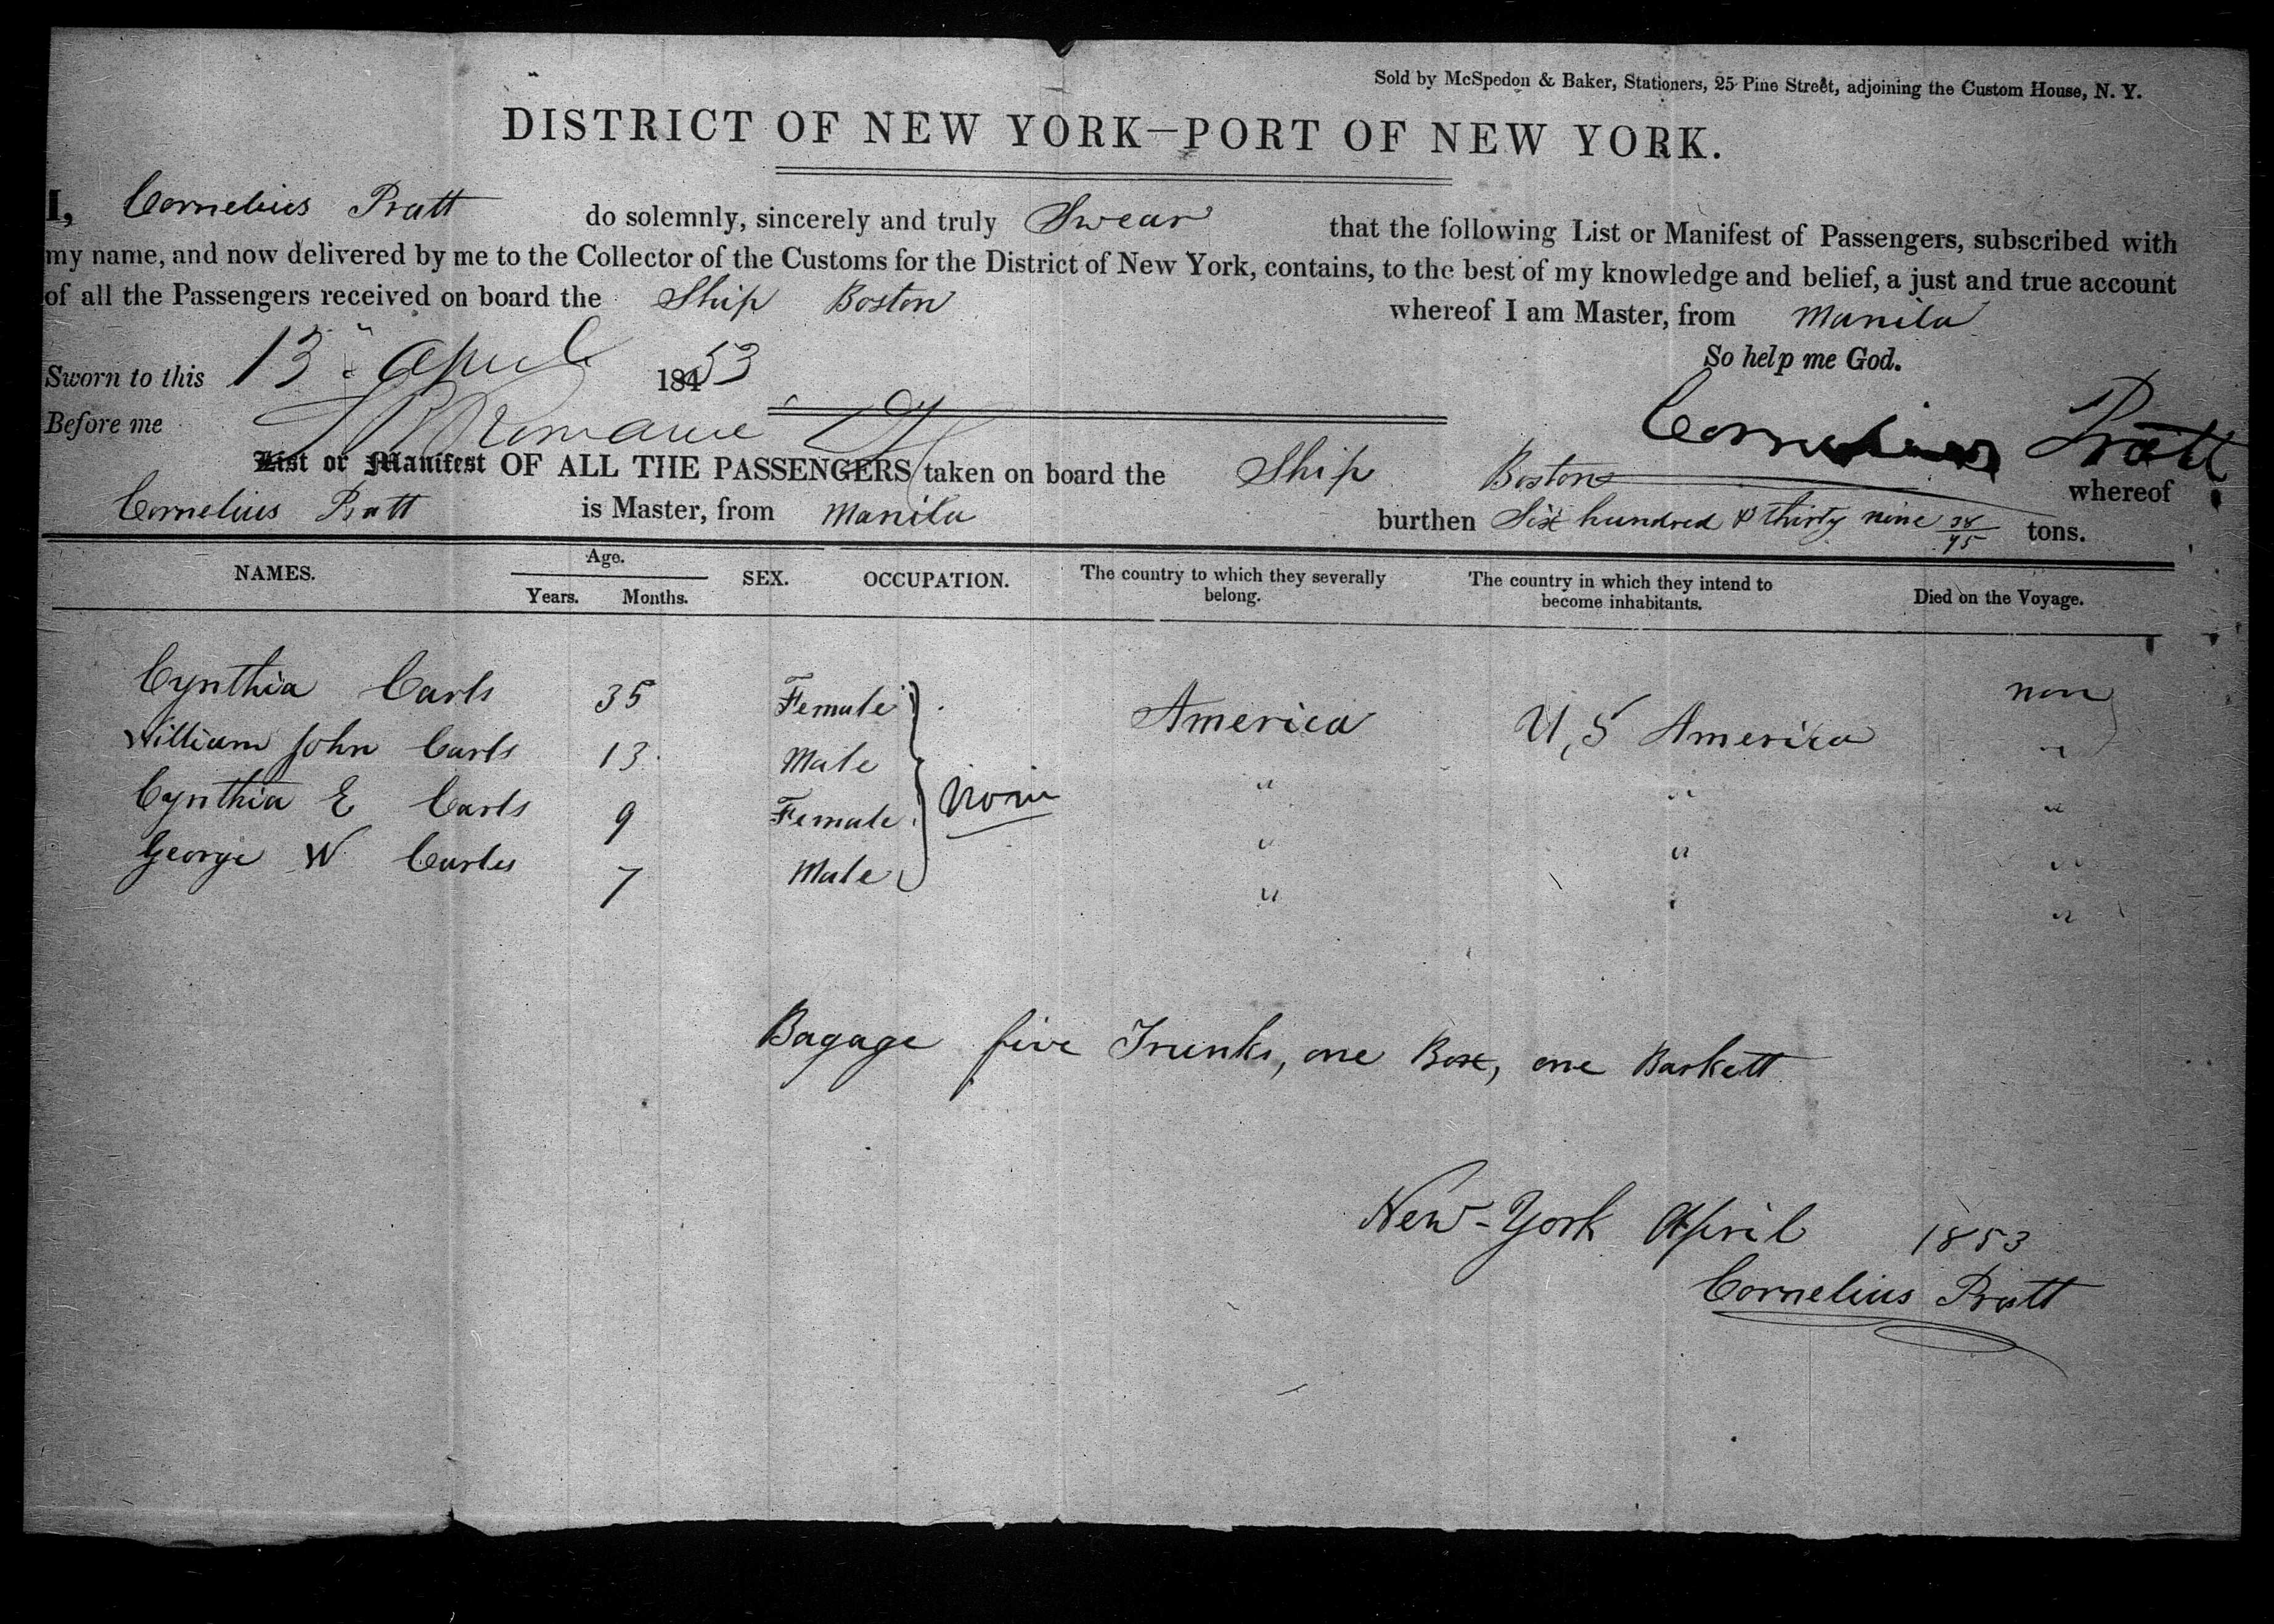 Sold by McSpedon & Baker, Stationers, 25 Pine Street, adjoining the Custom House, N. Y.
DISTRICT OF NEW YORK—PORT OF NEW YORK.
I, Cornelius Pratt do solemnly, sincerely and truly Swear that the following List or Manifest of Passengers, subscribed with
my name, and now delivered by me to the Collector of the Customs for the District of New York, contains, to the best of my knowledge and belief, a just and true account
of all the Passengers received on board the Ship Boston whereof I am Master, from Manila
So help me God.
Sworn to this 13 April 18453
Before me
Cornelius Pratt
List or Manifest OF ALL THE PASSENGERS taken on board the Ship Boston whereof
Cornelius Pratt is Master, from Manila burthen Six hundred & thirty nine 38/95 tons.
NAMES. Age. SEX. OCCUPATION. The country to which they severally belong. The country in which they intend to become inhabitants. Died on the Voyage.
Years. Months.
Cynthia Carls 35 Female America U, S America non
William John Carls 13 Male " " "
Cynthia E Carls 9 Female non " " "
George W Carles 7 Male " " "
"
Bagage five Trunks, one Box, one Baskett
New-York April 1853
Cornelius Pratt